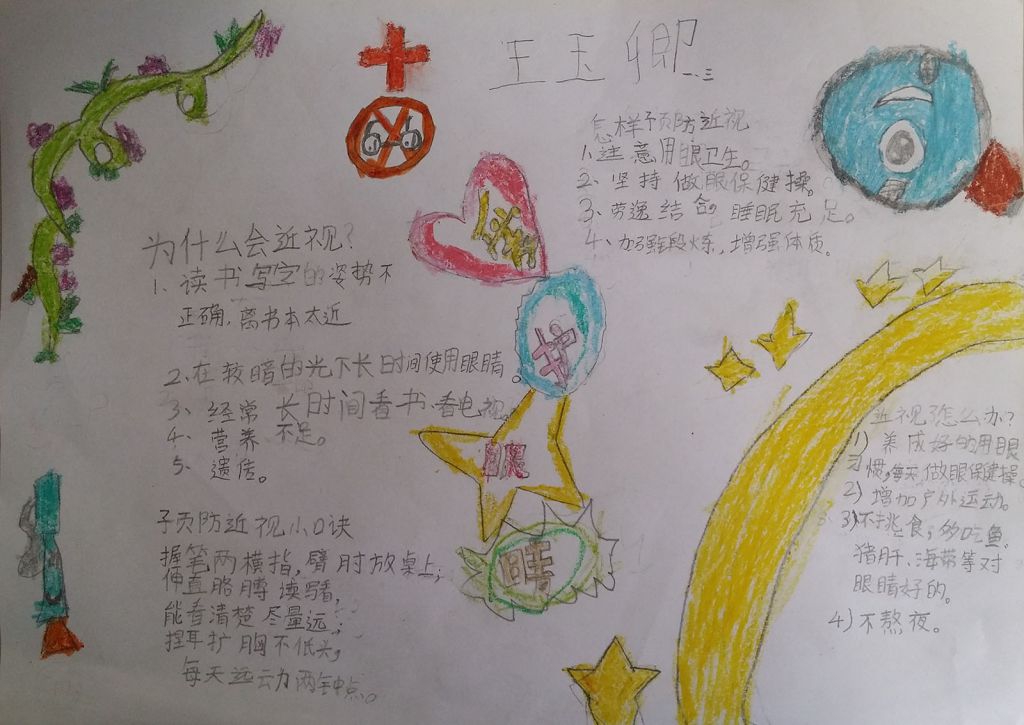 王玉卿
一.三
怎样预防近视
1、注意用眼卫生。
2、坚持做眼保健操。
3、劳逸结合,睡眠充足。
4、加强段炼,增强体质。
爱
护
眼
睛
为什么会近视?
1、读书写字的姿势不
正确,离书本太近
2、在较暗的光下长时间使用眼睛。
3、经常长时间看书、看电视。
4、营养不足。
5、遗传。
预防近视小口诀
握笔两横指,臂肘放桌上;
伸直胳膊读写看,
能看清楚尽量远;
捏耳扩胸不低头,
每天运动两钟点。
近视怎么办?
1)养成好的用眼
习惯,每天做眼保健操
2)增加户外运动。
3)不挑食,多吃鱼。
猪肝、海带等对
眼睛好的。
4)不熬夜。